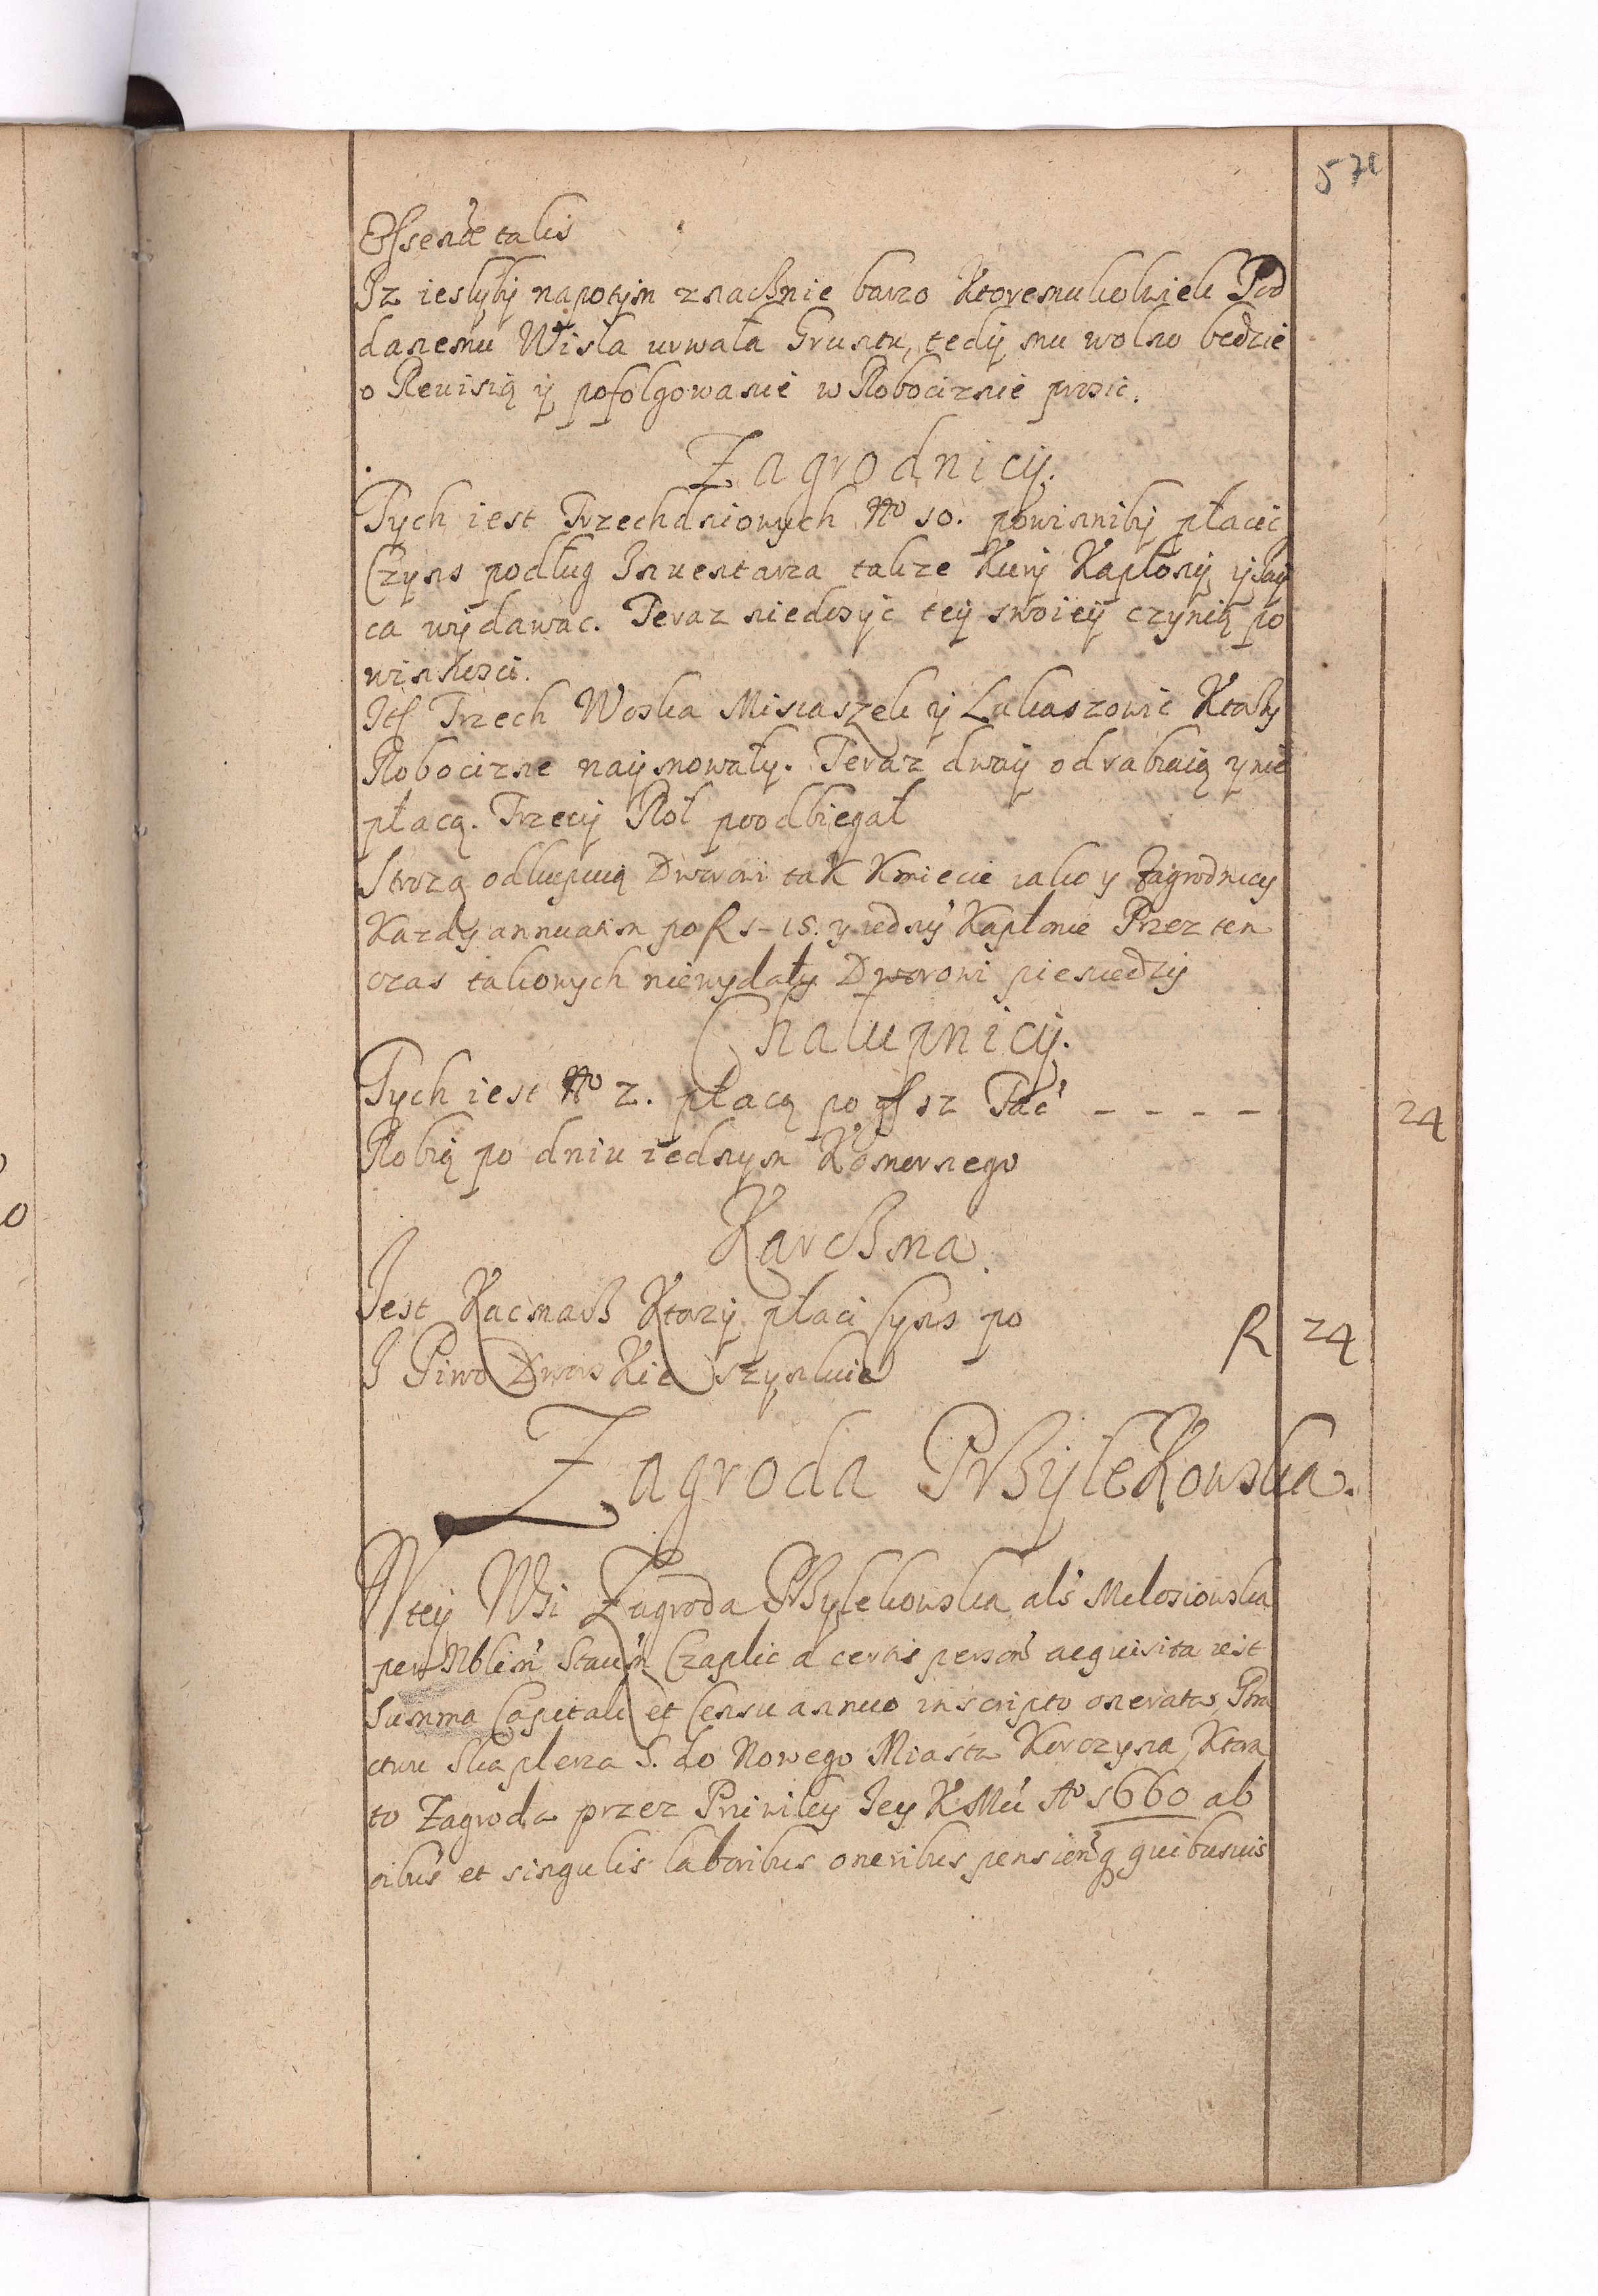 571
talis
Iz iesliby napotym znacßnie barzo Ktoremukolwiek Pod
danemu Wisła urwała Gruntu, tedy mu wolno bedzie
o Revisią y pofolgowanie w Robociznie prosic.
Zagrodnicy.
Tych iest Trzechdniowych No 10. powinniby płacic
Czyns podług Inuentarza takze Kury Kapłony y Iay
ca wydawac. Teraz niedosyc tey swoiey czynią po
winnosci.
Trzech Woska Misiaszek y Lukaszowic
Robocizne naymowały. Teraz dway odrabiaią y nie
płacą. Trzeci Rol poodbiegał
Strozą odkupuią Dworowi tak Kmiecie iako y Zagrodnicy
Kazdy annuatim po R 1-15. y iedny Kapłonie Przez ten
czas takowych niewydały Dworowi pieniedzy
Chałupnicy.
Tych iest No 2. płacą po gß 12 fac - - - - 24
Robią po dniu iednym Komornego
Karcßma.
Iest Kacmaß Ktory płaci Cyns po R 24
I Piwo Dworskie szynkuie
Zagroda Prßylekowska.
W tey Wsi Zagroda Prßylekowska als
per Nblem Staum Czaplic a certis person acquisita iest
Summa Capitali et Censu annuo inscripto onerata,
Skaplerza S. do Nowego Miasta Korczyna, Ktora
to Zagroda przez Priviley Iey K Mci Ao 1660 ab
oibus et singulis laboribus oneribus pensionq quibusuis